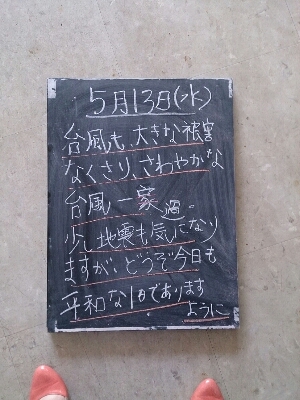 5月13日(水)
台風も、大きな被害
なくさり、さわやかな
台風一家過。
少し地震も気になり
ますが、どうぞ今日も
平和な1日であります
ように